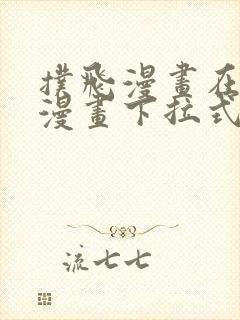 撲飛漫畫在
漫畫下拉式
流七七